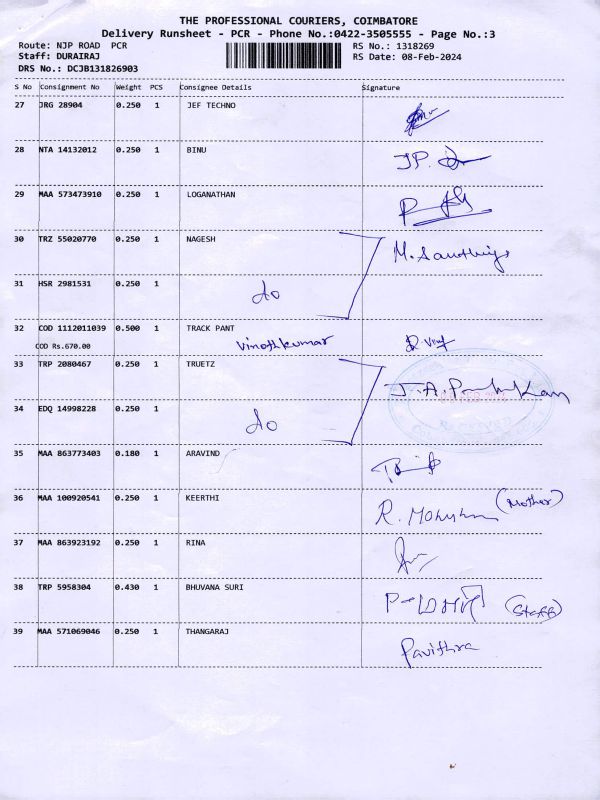 THE PROFESSIONAL COURIERS, COIMBATORE
Delivery Runsheet - PCR - Phone No.:0422-3505555 - Page No.:3
Route: NJP ROAD PCR
RS No.: 1318269
Staff: DURAIRAJ
RS Date: 08-Feb-2024
DRS No.: DCJB131826903
S No Consignment No Weight PCS Consignee Details Signature
27 JRG 28904 0.250 1 JEF TECHNO
28 NTA 14132012 0.250 1 BINU
JP.
29 MAA 573473910 0.250 1 LOGANATHAN
30 TRZ 55020770 0.250 1 NAGESH
M. Sandhiya
31 HSR 2981531 0.250 1
do
32 COD 1112011039 0.500 1 TRACK PANT
COD Rs.670.00 Vinothkumar
33 TRP 2080467 0.250 1 TRUETZ
J.A.
34 EDQ 14998228 0.250 1
do
35 MAA 863773403 0.180 1 ARAVIND
36 MAA 100920541 0.250 1 KEERTHI
R. (Mother)
37 MAA 863923192 0.250 1 RINA
38 TRP 5958304 0.430 1 BHUVANA SURI
(Staff)
39 MAA 571069046 0.250 1 THANGARAJ
Pavithra